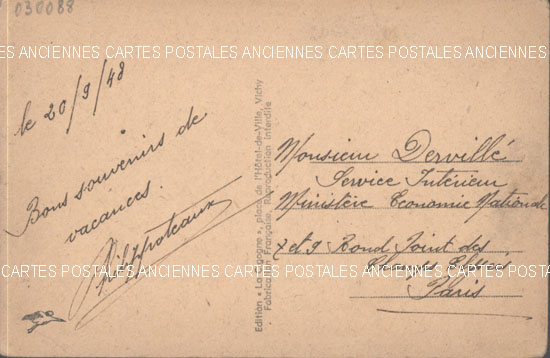 030088
ANCIENNES CARTES POSTALES ANCIENNES CARTES POSTALES ANCIENNES
le 20/9/48
Bons souvenirs de
vacances.
Edition « La Cigogne », place de l'Hôtel-de-Ville, Vichy
Fabrication Française, Reproduction Interdite
Monsieur Dervillé
Service Intérieur
Ministère Economie Nationale
7 et 9 Rond Point des
Champs Elysées
Paris
ANCIENNES CARTES POSTALES ANCIENNES CARTES POSTALES ANCIENNES